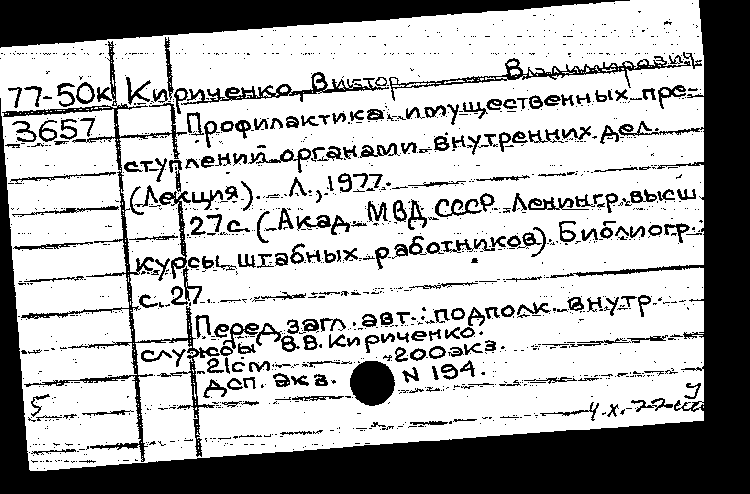 77-50к Кириченко, Виктор Владимирович
3657 Профилактика имущественных пре-
ступлений органами внутренних дел.
(Лекция). Л., 1977.
27с. (Акад. МВД СССР Ленингр. высш.
курсы штабных работников). Библиогр.:
с. 27
Перед загл. авт.: подполк. внутр.
службы В.В. Кириченко.
21см 200экз.
Дсп. Экз. N 194.
5